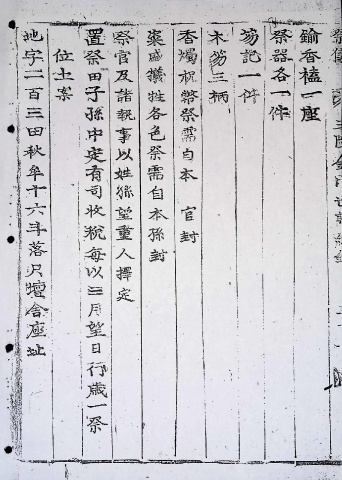 鍮香榼一座
祭器各一件
笏記一件
木笏三柄
香燭祝幣祭需自本 官封
粢盛犧牲各色祭需自本孫封
祭官及諸執事以姓孫望重人擇定
置祭田子孫中定有司收稅每以三月望日行歲一祭
位土案
地字二百三田秋牟十六斗落只壇舍座址